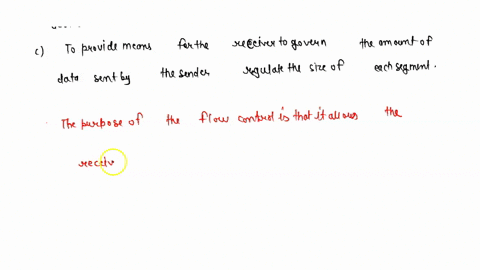 c) To provide means for the receiver to govern the amount of
data sent by the sender regulate the size of each segment.
The purpose of the flow control is that it allows the
receiv